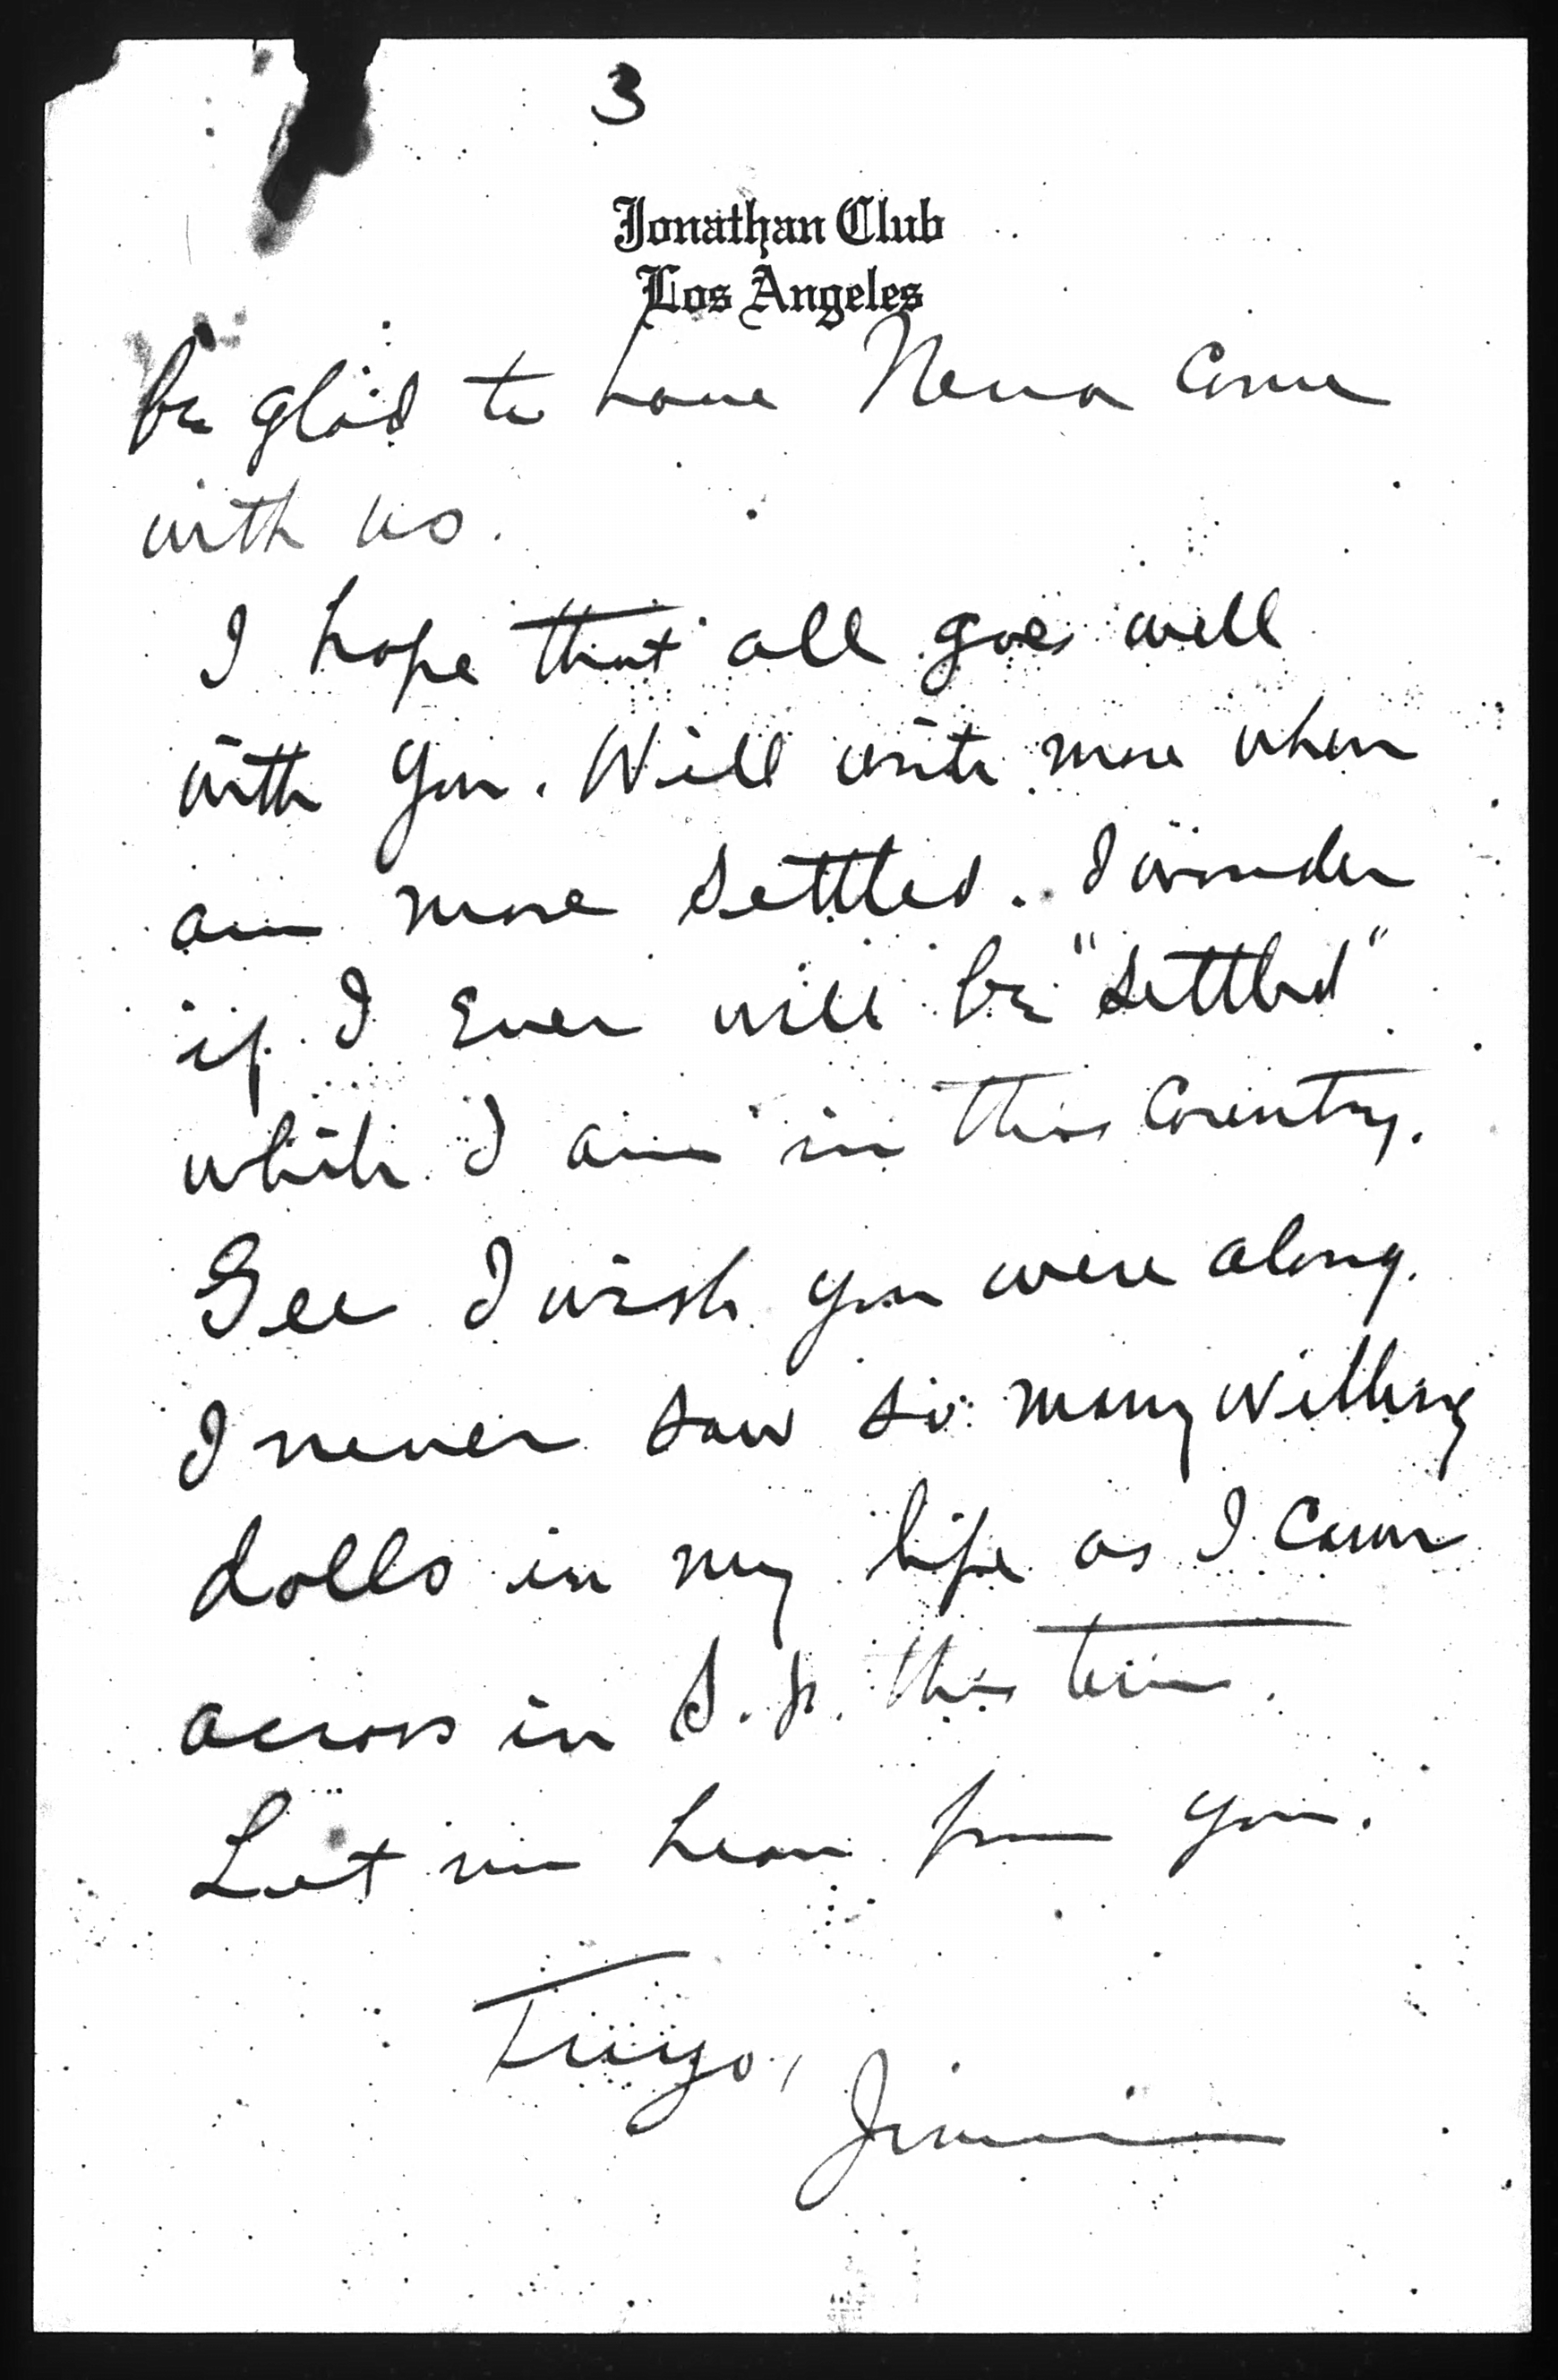 3
Jonathan Club
Los Angeles
be glad to have Nena come
with us.
I hope that all goes well
with you. Will write more when
am more settled. I wonder
if I ever will be "settled"
while I am in this country.
Gee I wish you were along.
I never saw so many willing
dolls in my life as I came
across in S. F. this time.
Let me hear from you.
Jimmie